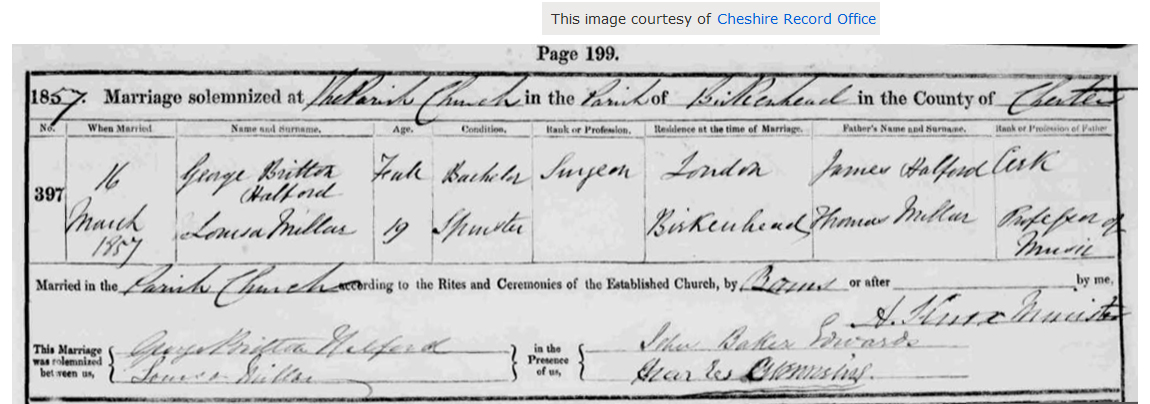 This image courtesy of Cheshire Record Office
Page 199.
1857. Marriage solemnized at The Parish Church in the Parish of Birkenhead in the County of Chester
No. When Married. Name and Surname. Age. Condition. Rank or Profession. Residence at the time of Marriage. Father's Name and Surname. Rank or Profession of Father
397 16 March 1857 George Britton Halford Full Bachelor Surgeon London James Halford Clerk
Louisa Millar 19 Spinster Birkenhead Thomas Millar Professor of Music
Married in the Parish Church according to the Rites and Ceremonies of the Established Church, by Banns or after by me,
A. Knox Minister
This Marriage was solemnized between us, George Britton Halford Louisa Millar in the Presence of us, John Baker Edwards Charles